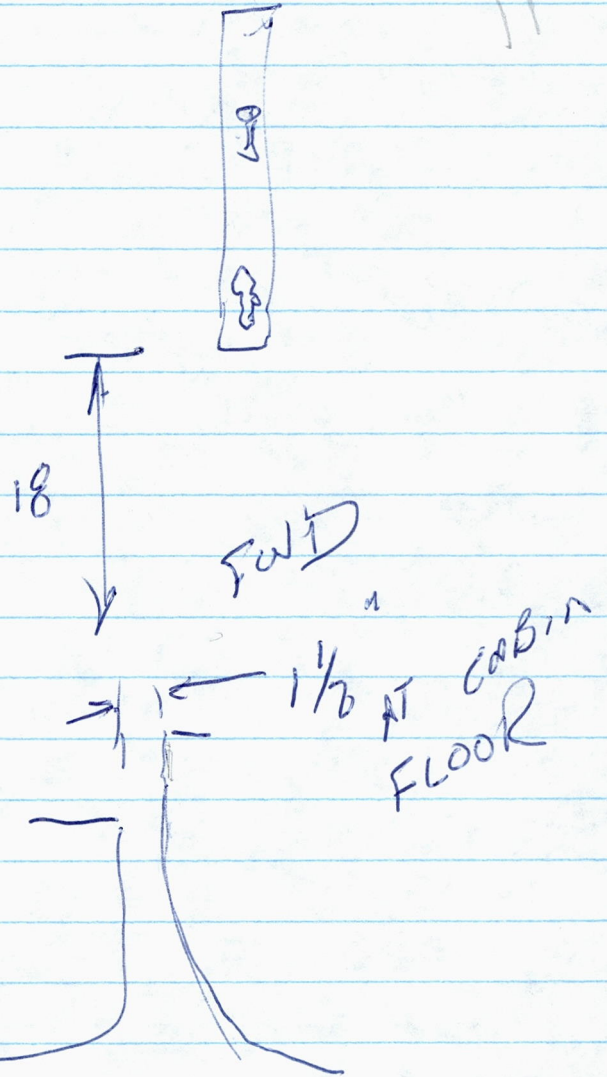 18
FWD
1 1/8 " AT CABIN
FLOOR